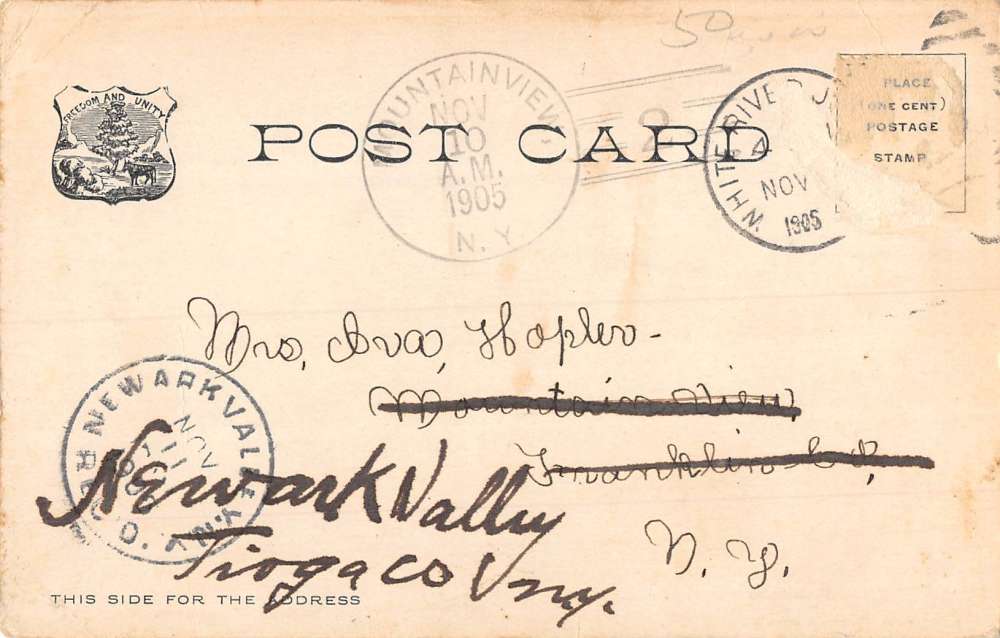 50
FREEDOM AND UNITY
POST CARD
MOUNTAINVIEW
NOV
10
A.M.
1905
N.Y.
2
WHITE RIVER J
NOV
1905
PLACE
(ONE CENT)
POSTAGE
STAMP
Mrs, Ava, Hopler-
Mountain View,
Franklin Co,
N. Y.
NEWARK VALLEY, N.Y.
NOV
11
REC'D.
Newark Valley
Tioga co
n.y.
THIS SIDE FOR THE ADDRESS